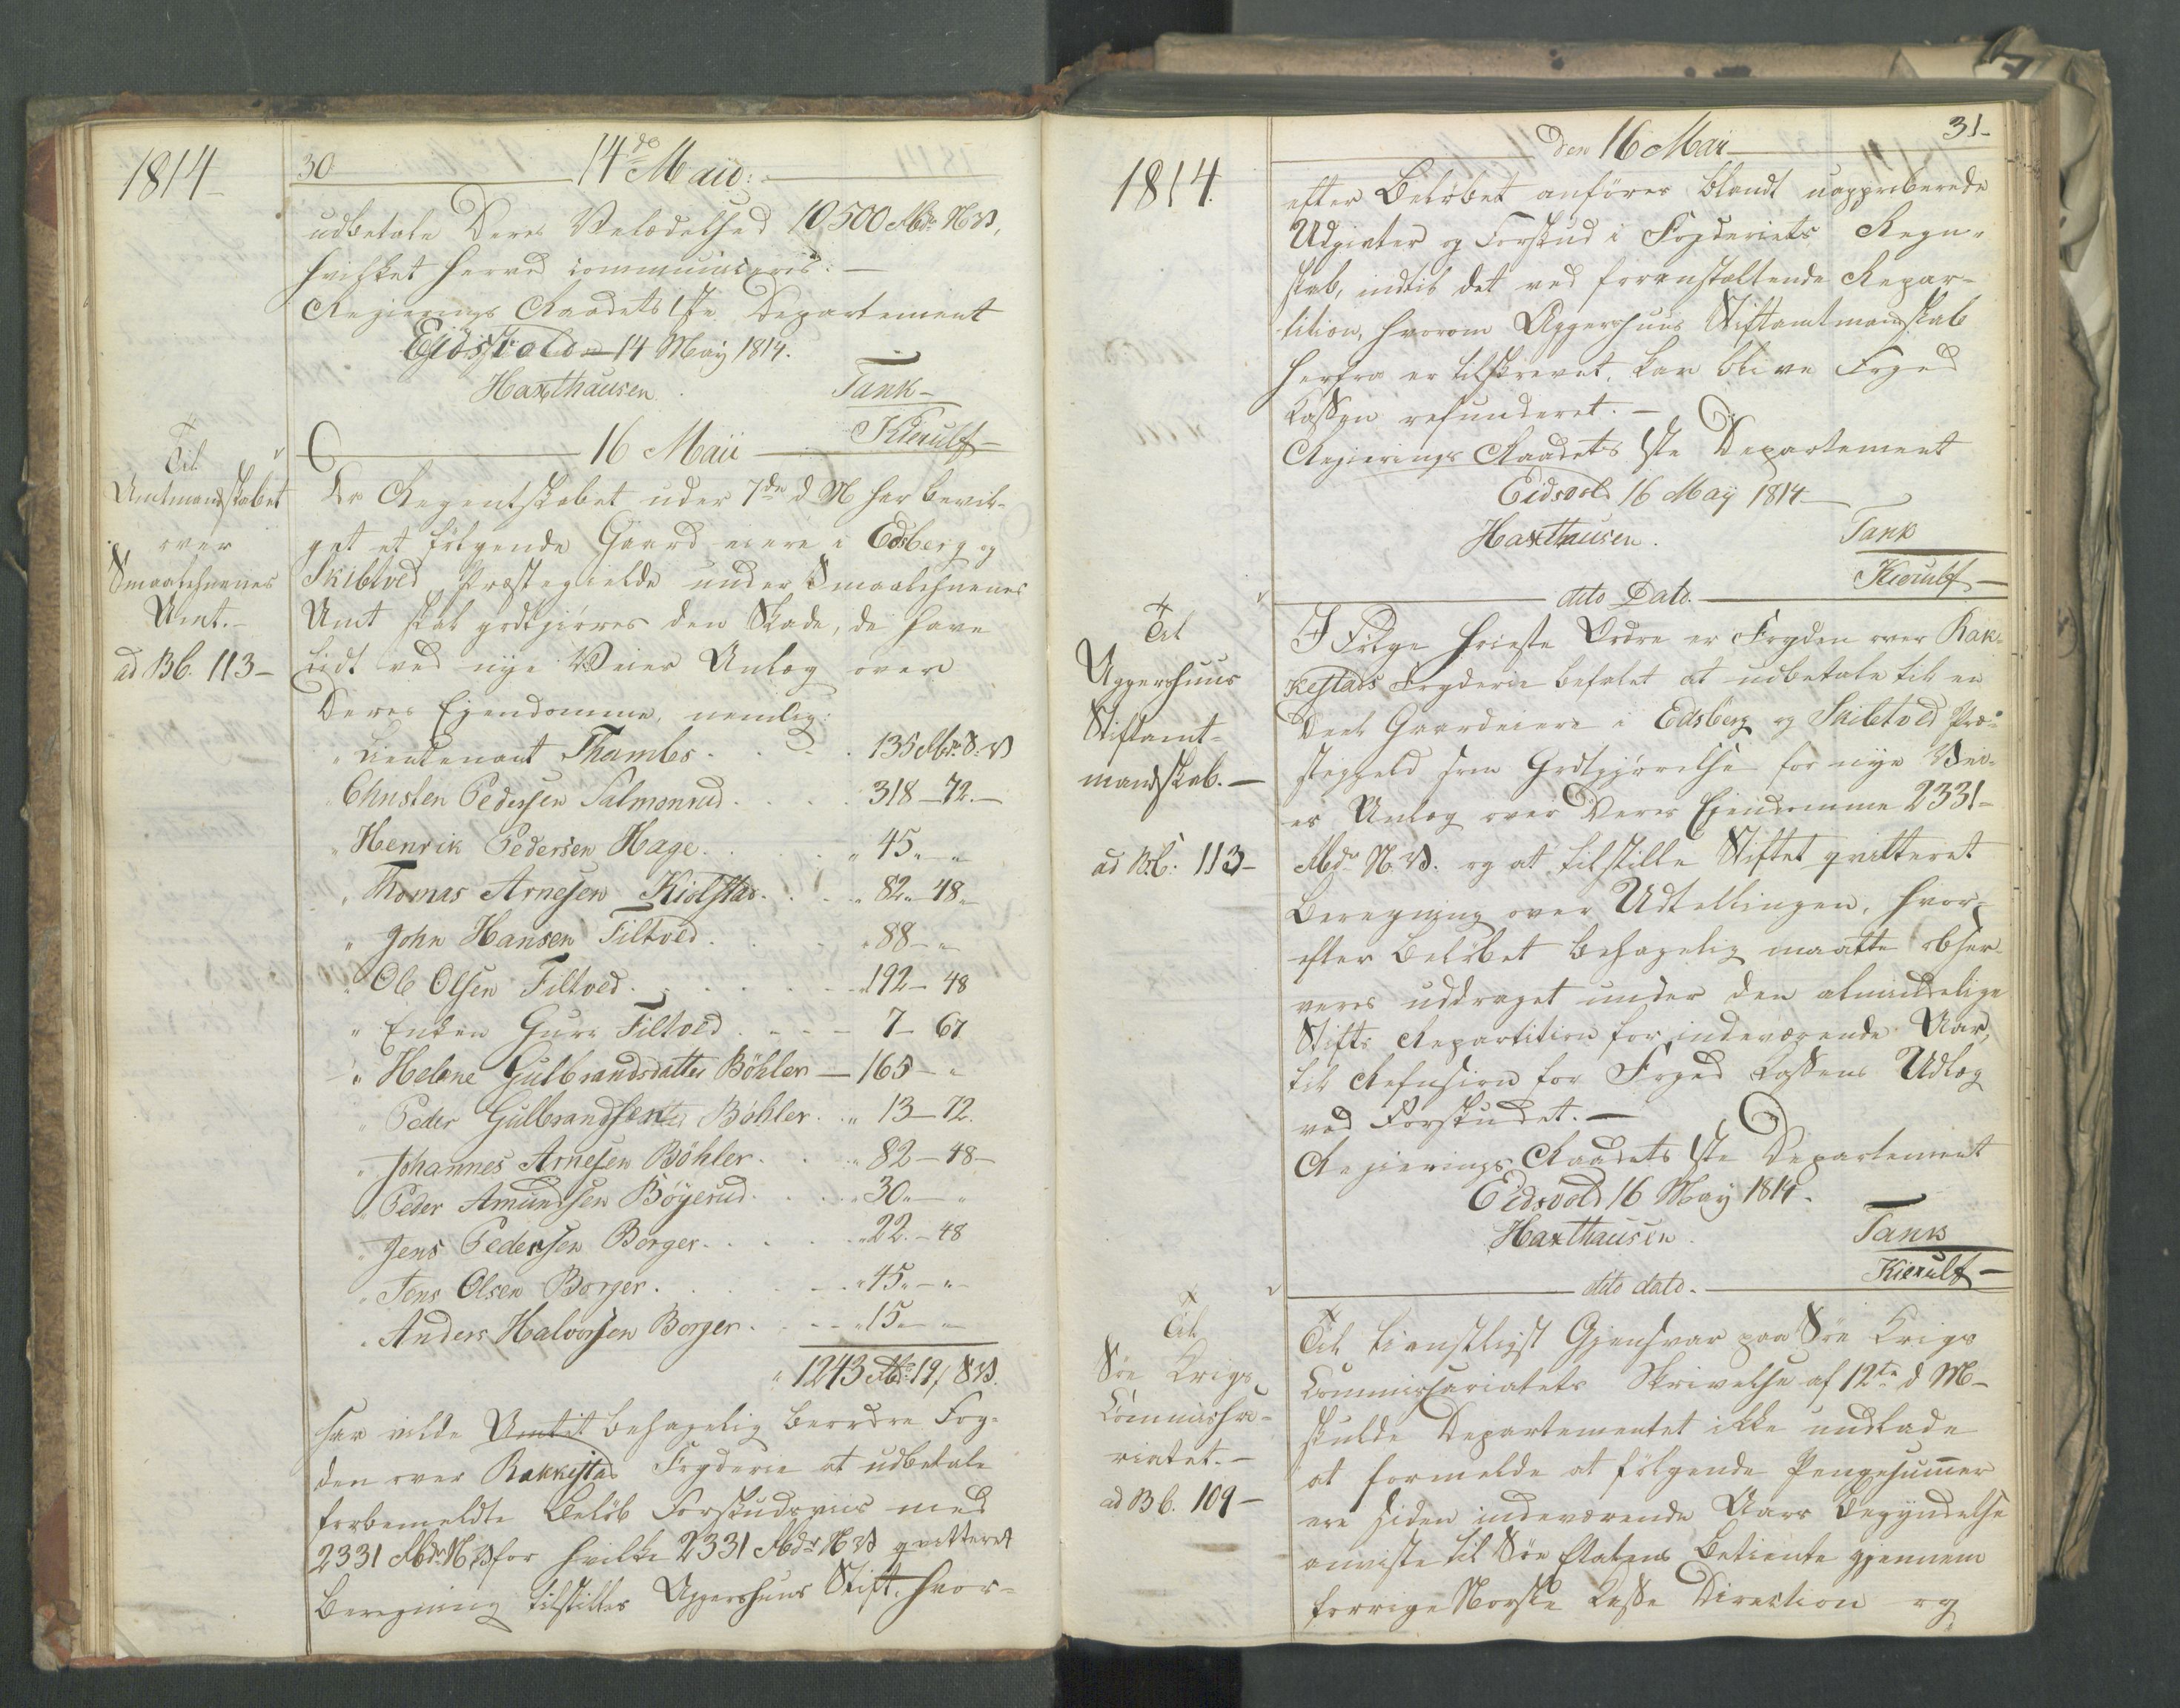 1814
30
14de Maii:
udbetale Deres Velædelhed 10500 Rbdr NV,
hvilket herved communiceres. —
Regierings Raadets 1ste Departement
Eidsvold 14 May 1814.
Haxthausen. Tank
Kierulf
16 Maii
Til
Amtmandskabet
over
Smaalehnenes
Amt. –
ad B b. 113 –
Da Regentskabet under 7de d M har bevil-
get at følgende Gaard eiere i Edsberg og
Skibtved Præstegielde under Smaalehnenes
Amt skal godtgiøres den Skade, de have
liidt ved nye Veies Anlæg over
Deres Eiendomme, nemlig:
" Lieutenant Thambs . . . 135 Rbdr S.V
" Christen Pedersen Salmonrud . . . 318 – 72. –
" Henrik Pedersen Hage . . . " 45 " – "
" Thomas Arnesen Kiolstad . . . " 82 " 48 "
" John Hansen Tiltved . . . " 88 – "
" Ole Olsen Tiltved . . . " 192 – 48
" Enken Guri Tiltved . . . 7 – 67
" Helene Gulbrandsdatter Böhler — 165 – "
" Peder Gulbrandsen Böhler . . " 13 – 72.
" Johannes Arnesen Böhler . . . " 82 – 48 –
" Peder Amundsen Böyerud . . . " 30 " – "
" Jens Pedersen Borger . . . " 22. – 48
" Jens Olsen Borger . . . " 45 " – " –
" Anders Halvorsen Borger . . . " 15 – " –
" 1243 Rbdr 19 s SV.
saa vilde Amtet behagelig beordre Fog-
den over Rakkestad Fogderie at udbetale
forbemeldte Beløb Forskudsviis med
2331 Rbdr NV for hvilke 2331 Rbdr NV qvitteret
Beregning tilstilles Aggershuus Stift, hvor-
31 –
den 16 Mai
1814.
efter Beløbet anføres blandt uapproberede
Udgivter og Forskud i Fogderiets Regn-
skab, indtil det ved foranstaltende Repar-
tition, hvorom Aggershuus Stiftamtmandskab
herfra er tilskrevet, kan blive Foged
Cassen refunderet. –
Regierings Raadets 1ste Departement
Eidsvold 16 May 1814
Haxthausen. Tank
Kierulf –
dito Dato.
Til
Aggershuus
Stiftamt-
mandskab. –
ad B.b: 113 –
I Følge høieste Ordre er Fogden over Rak-
kestads Fogderie befalet at udbetale til en
Deel Gaardeiere i Edsberg og Skibtved Præ-
stegield som Godtgjørelse for nye Vei-
es Anlæg over Deres Eiendomme 2331 –
Rbdr N.V. og at tilstille Stiftet qvitteret
Beregning over Udtellingen, hvor-
efter Beløbet behagelig maatte obser-
veres uddraget under den almindelige
Stifts Repartition for indeværende Aar,
til Refusion for Foged Cassens Udlæg
ved Forskudet. –
Regierings Raadets 1ste Departement
Eidsvold 16 May 1814.
Haxthausen. Tank
Kierulf –
dito dato.
Til
Søe Krigs
Commissa-
riatet. –
ad B b. 109 –
Til tienstligst Giensvar paa Søe Krigs
Commissariatets Skrivelse af 12te d M –
skulde Departementet ikke undlade
at formelde at følgende Pengesummer
ere siden indeværende Aars Begyndelse
anviste til Søe Etatens Betiente gjennem
forrige Norske Casse Direction og